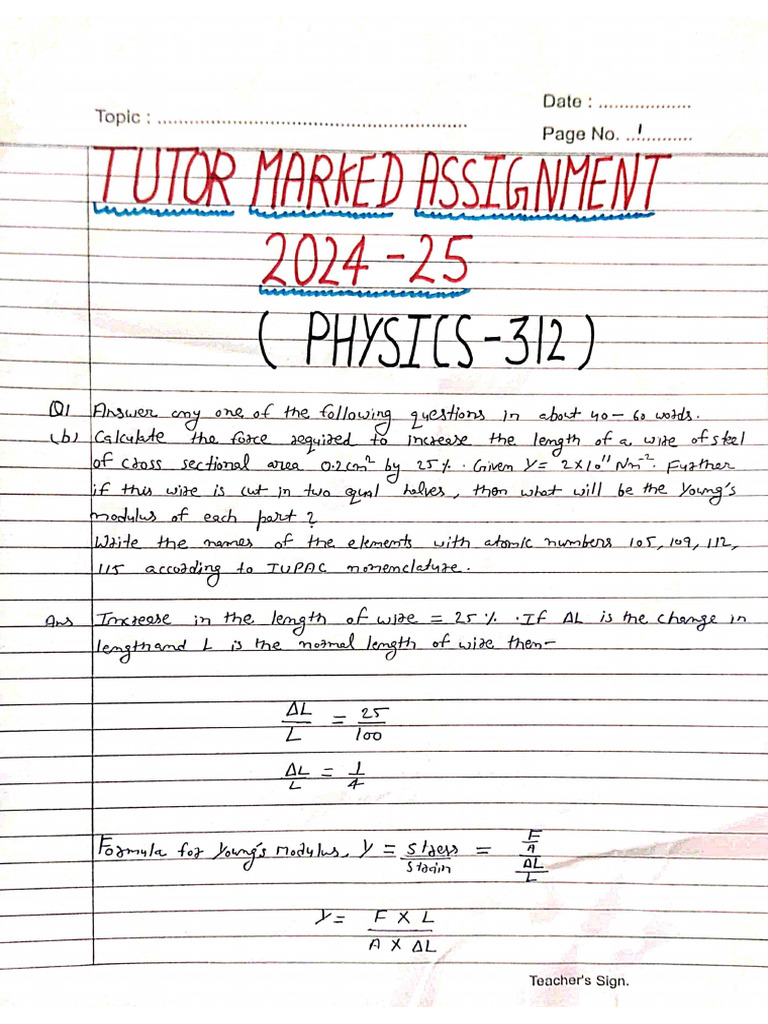 Date : ..................
Topic : ............................................................
Page No. ...1..........
TUTOR MARKED ASSIGNMENT
2024-25
( PHYSICS-312 )
Q1 Answer any one of the following questions in about 40-60 words.
(b) Calculate the force required to increase the length of a wire of steel
of cross sectional area 0.2cm² by 25%. Given Y= 2×10¹¹ Nm⁻². Further
if this wire is cut in two qual halves, then what will be the Young's
modulus of each part?
Write the names of the elements with atomic numbers 105, 109, 112,
115 according to IUPAC nomenclature.
Ans Increase in the length of wire = 25%. If ΔL is the change in
length and L is the normal length of wire then-
ΔL/L = 25/100
ΔL/L = 1/4
Formula for Young's Modulus, Y = stress/strain = (F/A)/(ΔL/L)
Y = F X L / A X ΔL
Teacher's Sign.